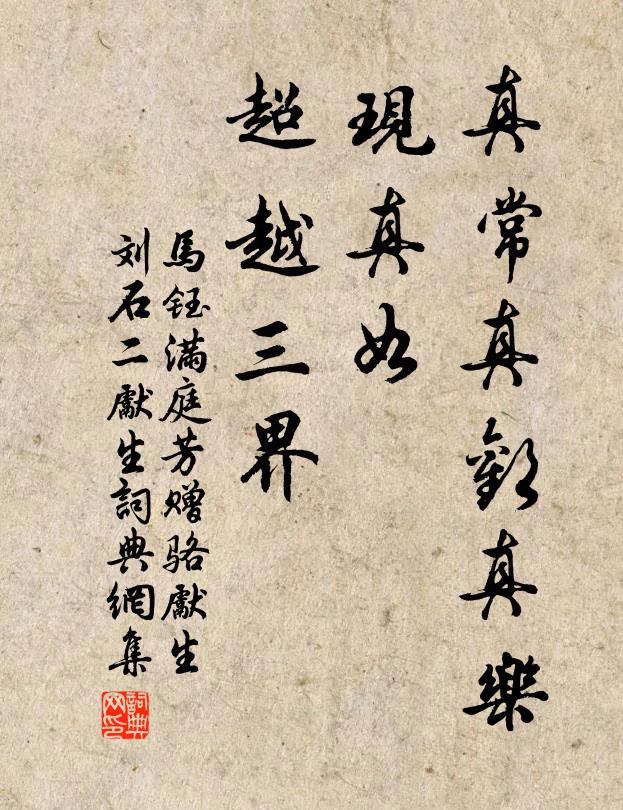 真常真歡真樂
現真如
超越三界
馬鈺滿庭芳赠骆獻生
刘石二獻生詞典網集
詞典网印